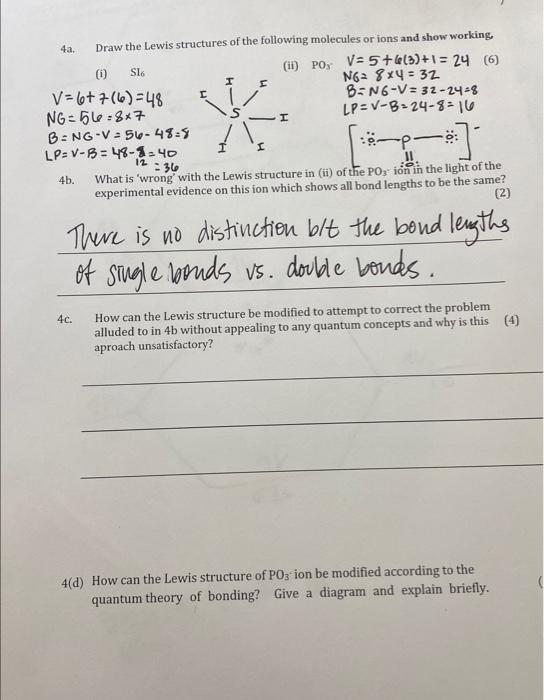 4a. Draw the Lewis structures of the following molecules or ions and show working.
(i) SI₆ (ii) PO₃⁻ V = 5 + 6(3) + 1 = 24 (6)
NG = 8 x 4 = 32
B = NG - V = 32 - 24 = 8
LP = V - B = 24 - 8 = 16
V = 6 + 7(6) = 48
NG = 56 = 8 x 7
B = NG - V = 56 - 48 = 8
LP = V - B = 48 - 8 = 40
12 = 36
I I
I S I
I I
[:Ö - P - Ö:]⁻
||
:O:
4b. What is 'wrong' with the Lewis structure in (ii) of the PO₃⁻ ion in the light of the
experimental evidence on this ion which shows all bond lengths to be the same?
(2)
There is no distinction b/t the bond lengths
of single bonds vs. double bonds.
4c. How can the Lewis structure be modified to attempt to correct the problem
alluded to in 4b without appealing to any quantum concepts and why is this (4)
aproach unsatisfactory?
4(d) How can the Lewis structure of PO₃⁻ ion be modified according to the
quantum theory of bonding? Give a diagram and explain briefly. (